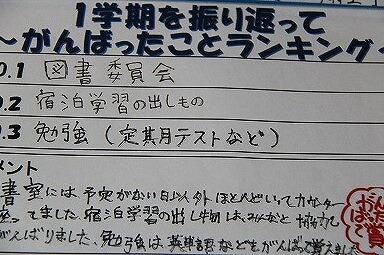 1学期を振り返って
～がんばったことランキング～
0.1 図書委員会
0.2 宿泊学習の出しもの
0.3 勉強(定期テストなど)
メント
書室には、予定がない日以外ほとんどいってカウンター
座ってました。宿泊学習の出し物は、みんなと協力して
がんばりました。勉強は、英単語などをがんばって覚えました。